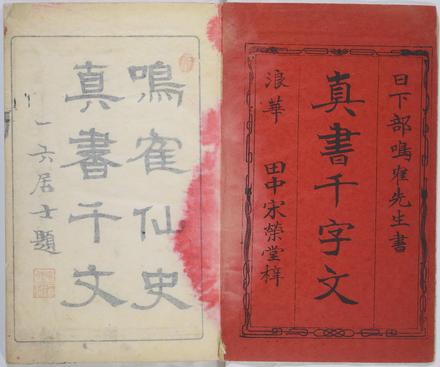 日下部鳴雀先生書
真書千字文
浪華 田中宋榮堂梓
鳴雀仙史
真書千文
一六居士題